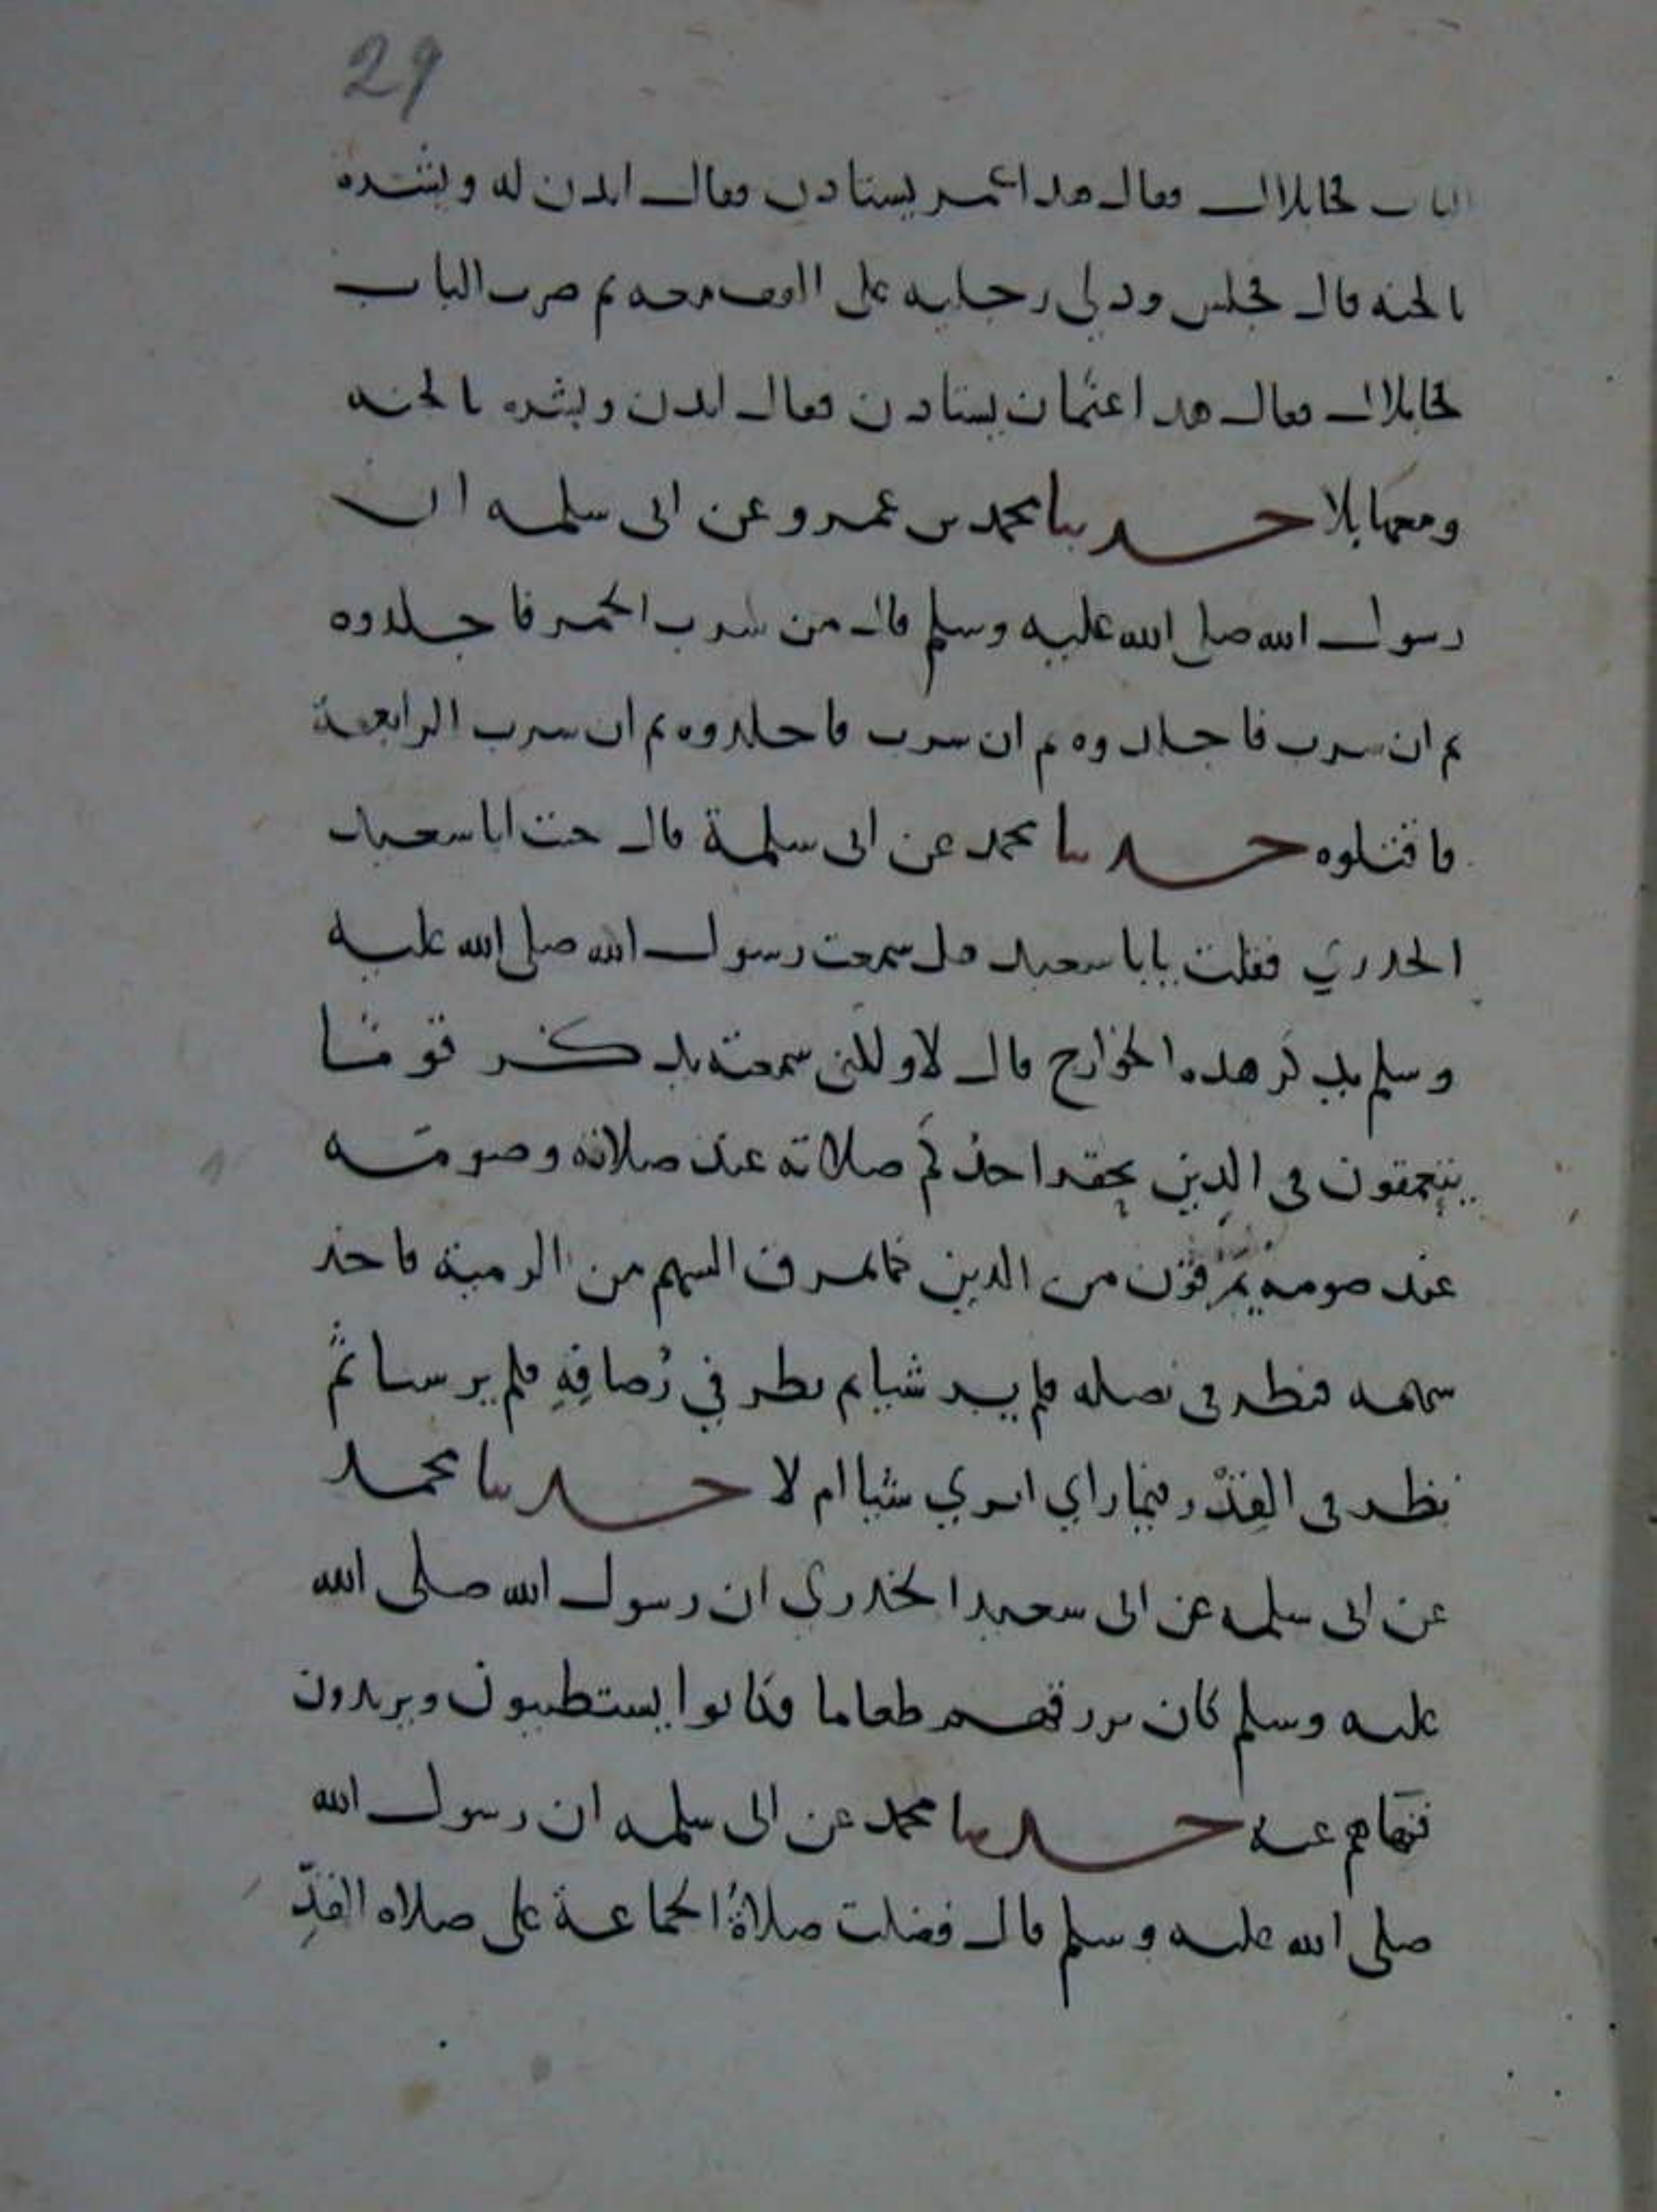 29
الباب فجا بلال فقال هذا عمر يستاذن فقال ايذن له وبشره
بالجنه قال فجلس ودلى رجليه على القف معه ثم ضرب الباب
فجا بلال فقال هذا عثمان يستاذن فقال ايذن وبشره بالجنه
ومعها بلا حدثنا محمد بن عمرو عن ابى سلمه ان
رسول الله صلى الله عليه وسلم قال من شرب الخمر فاجلدوه
ثم ان شرب فاجلدوه ثم ان شرب فاجلدوه ثم ان شرب الرابعة
فاقتلوه حدثنا محمد عن ابى سلمة قال جئت ابا سعيد
الخدري فقلت يابا سعيد هل سمعت رسول الله صلى الله عليه
وسلم يذكر هذه الخوارج قال لا ولكنى سمعته يذكر قومًا
يتعمقون فى الدين يحقر احدكم صلاته عند صلاته وصومه
عند صومه يمرقون من الدين كما يمرق السهم من الرمية فاخذ
سهمه فنظر فى نصله فلم ير شيا ثم نظر في رُصافِهِ فلم ير شيا ثم
نظر فى القذذ فتمارى ايرى شيا ام لا حدثنا محمد
عن ابى سلمه عن ابى سعيد الخدرى ان رسول الله صلى الله
عليه وسلم كان يرزقهم طعاما فكانوا يستطيبون ويريدون
فنهاهم عنه حدثنا محمد عن ابى سلمه ان رسول الله
صلى الله عليه وسلم قال فضلت صلاةُ الجماعة على صلاه الفذِّ